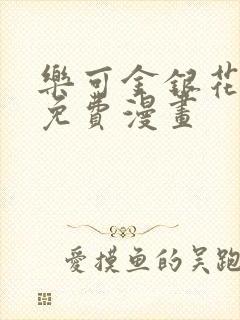 樂可金銀花
免費漫畫
愛摸鱼的吴跑